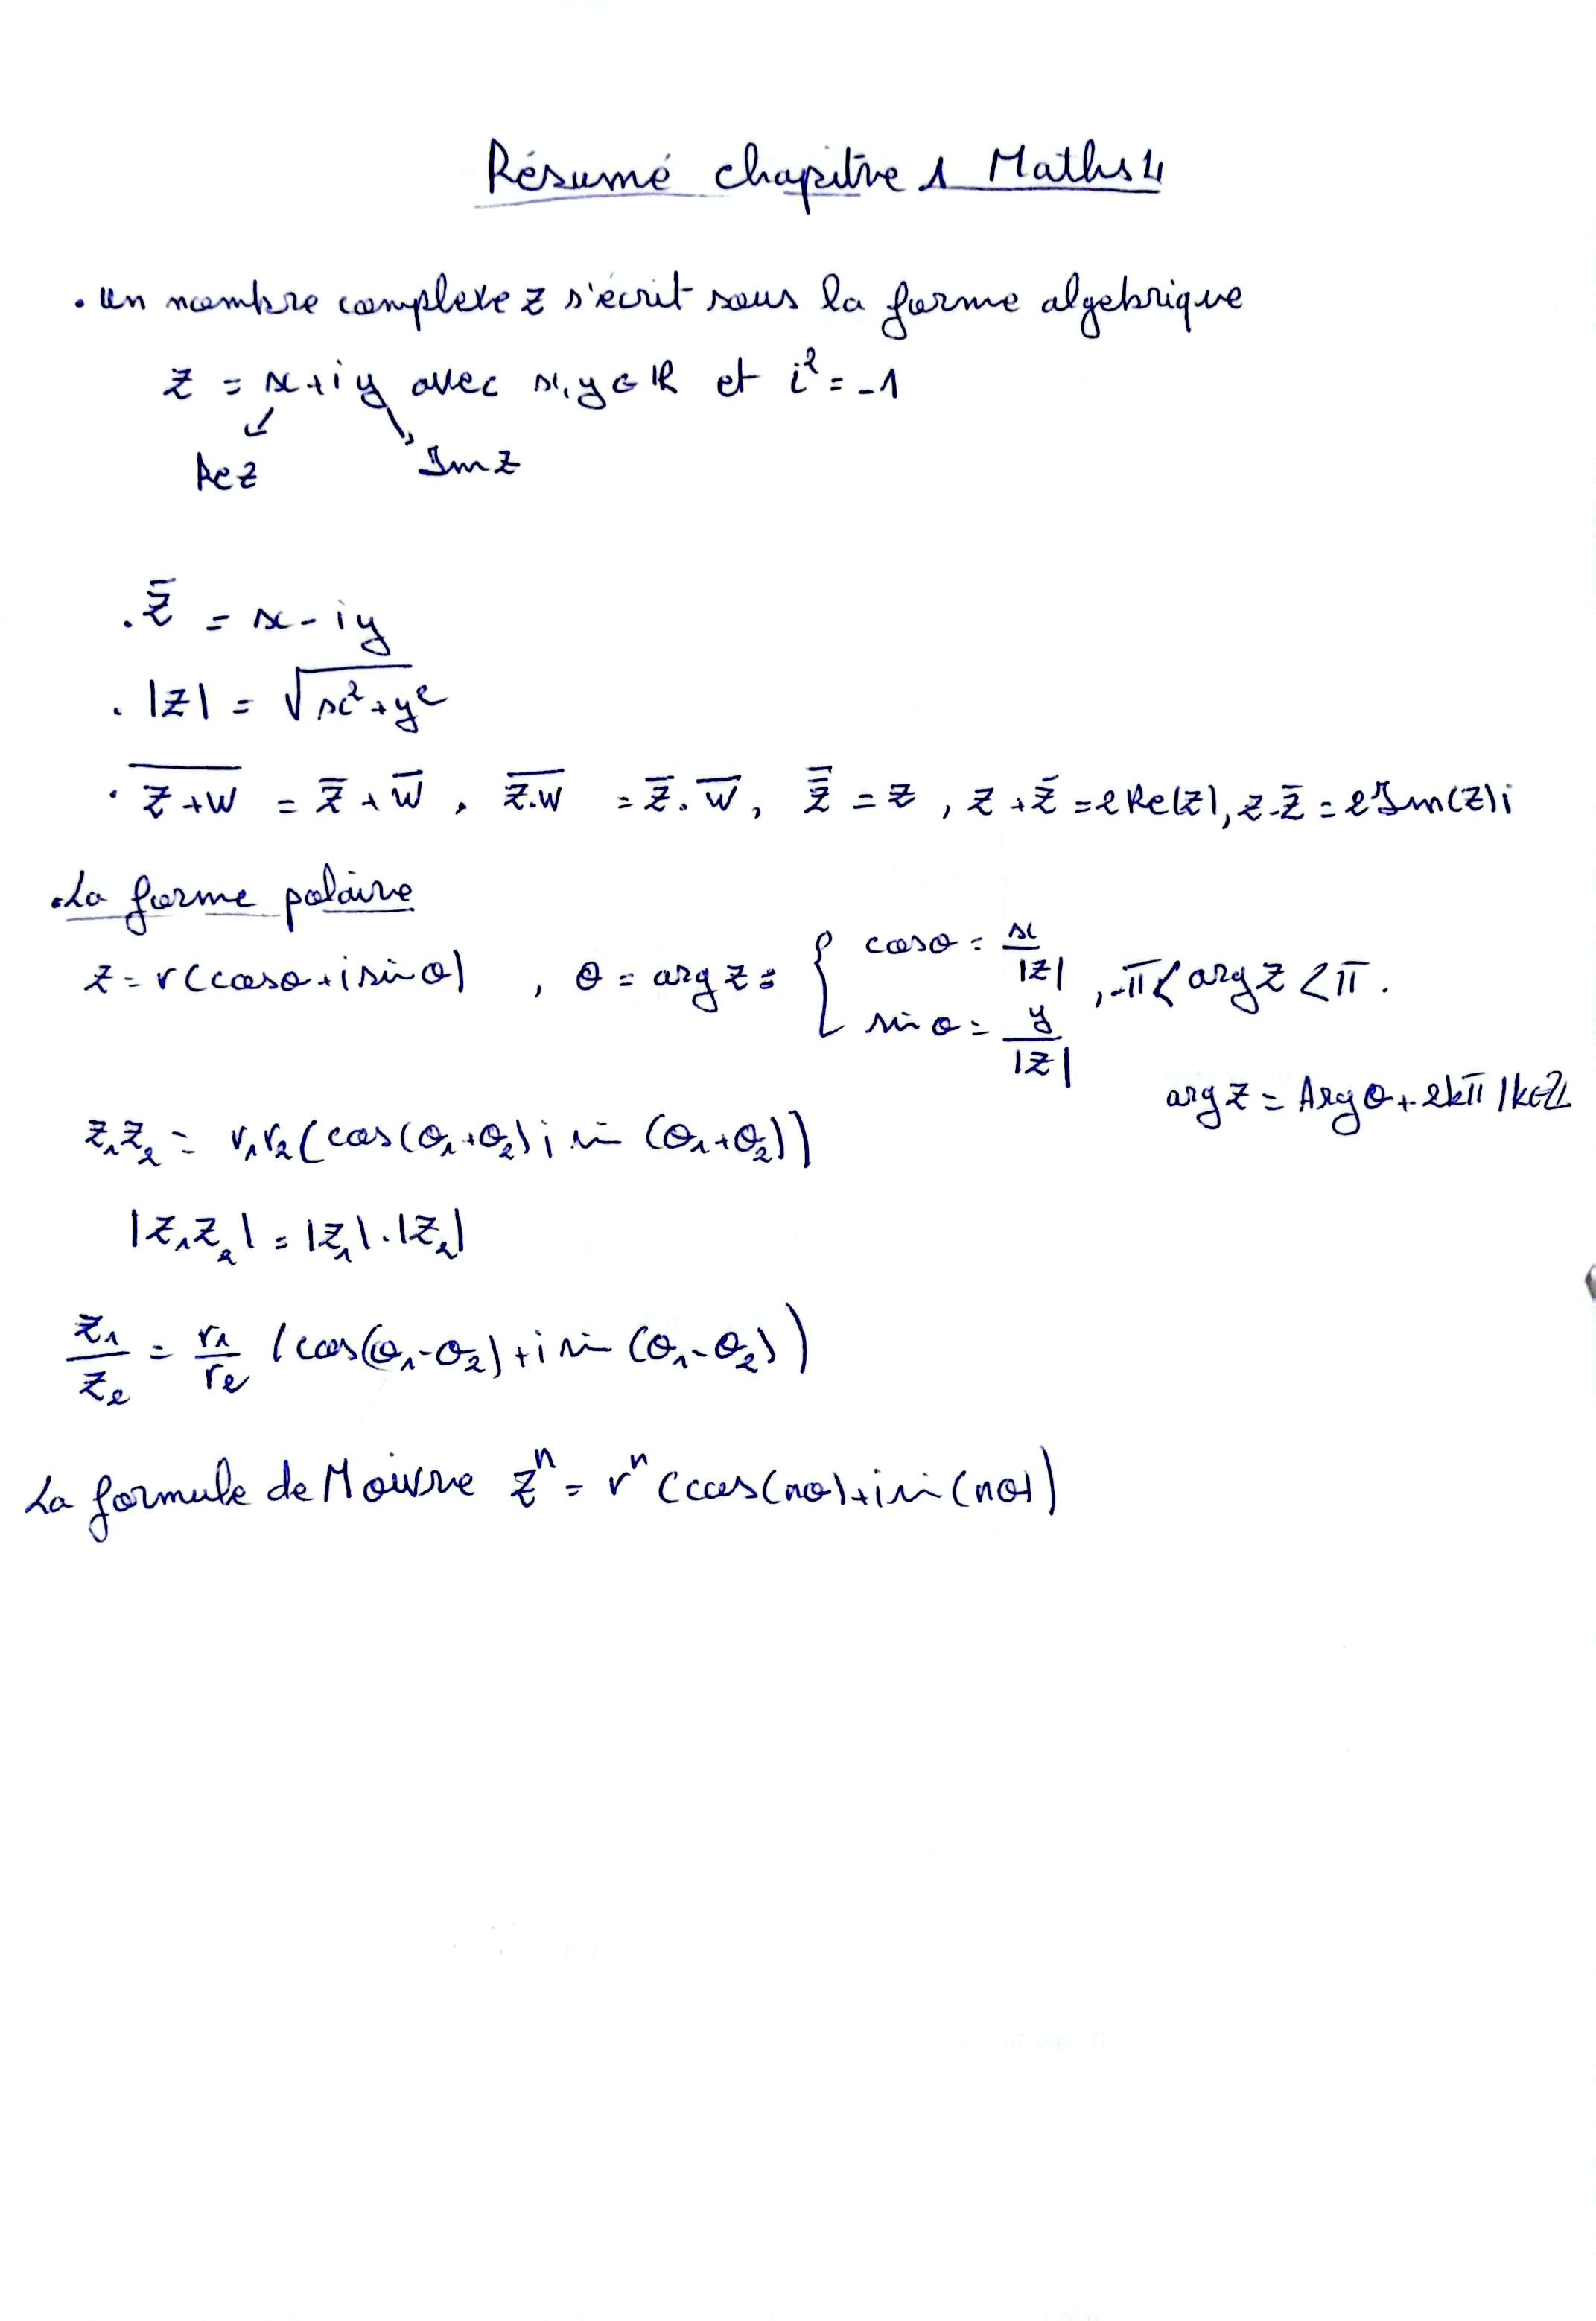 Résumé chapitre 1 Maths 4
. Un nombre complexe z s'écrit sous la forme algebrique
z = x+iy avec x,y ∈ ℝ et i² = -1
Re z Im z
. z̅ = x - iy
. |z| = √(x²+y²)
. \overline{z+w} = z̅ + w̅ , \overline{z.w} = z̅ . w̅ , \overline{z̅} = z , z + z̅ = 2Re(z), z - z̅ = 2Im(z)i
. La forme polaire
z = r(cosθ + i sinθ) , θ = arg z = { cosθ = x/|z| , sinθ = y/|z| , -π < arg z < π .
arg z = Arg θ + 2kπ / k∈ℤ
z₁z₂ = r₁r₂(cos(θ₁+θ₂) i sin (θ₁+θ₂))
|z₁z₂| = |z₁|.|z₂|
z₁/z₂ = r₁/r₂ (cos(θ₁-θ₂)+i sin (θ₁-θ₂))
La formule de Moivre zⁿ = rⁿ (cos(nθ)+i sin(nθ))